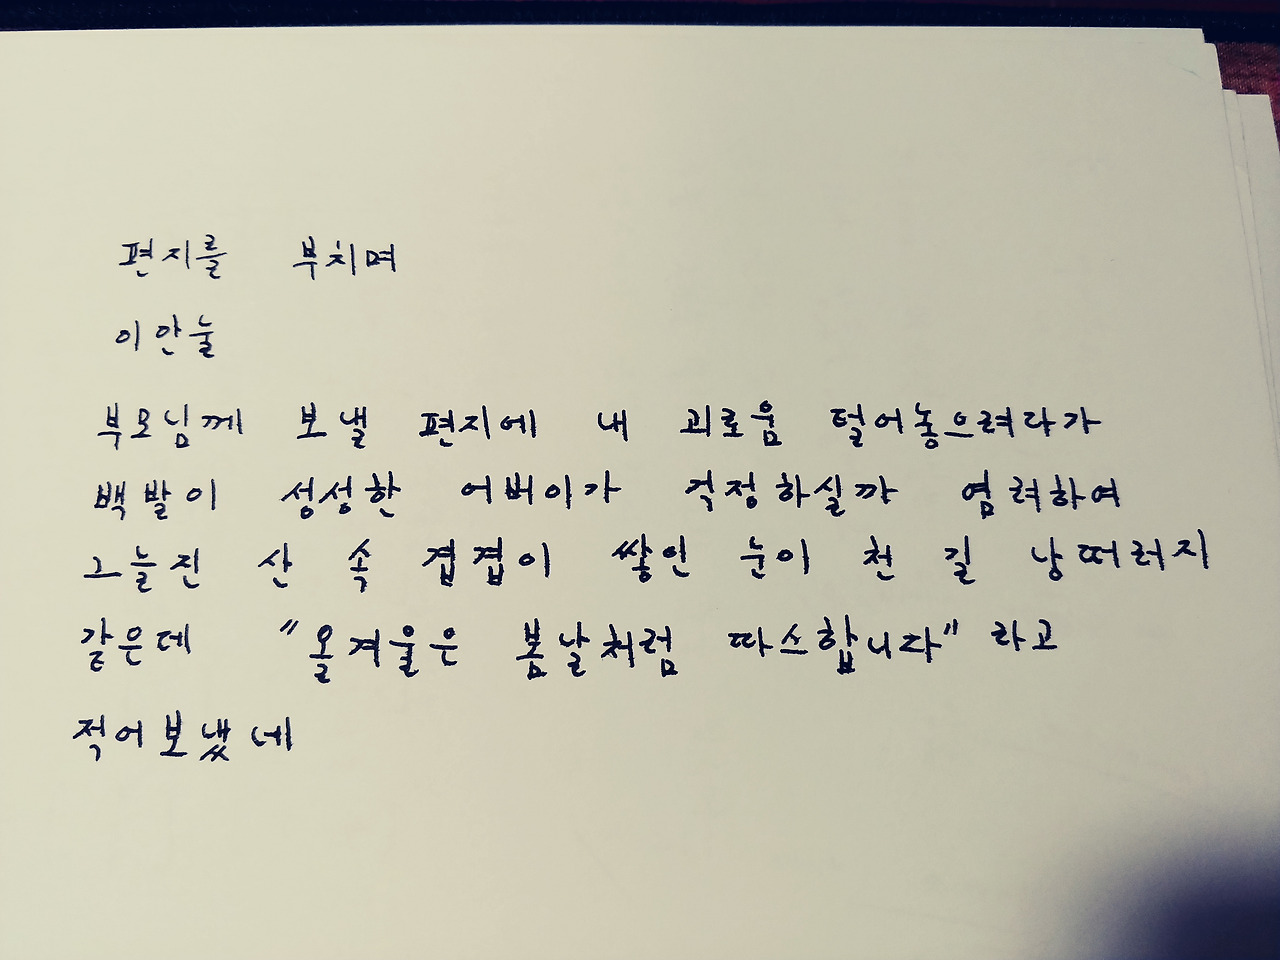 편지를 부치며
이안눌
부모님께 보낼 편지에 내 괴로움 털어놓으려다가
백발이 성성한 어버이가 걱정하실까 염려하여
그늘진 산 속 겹겹이 쌓인 눈이 천 길 낭떠러지
같은데 "올겨울은 봄날처럼 따스합니다" 라고
적어보냈네